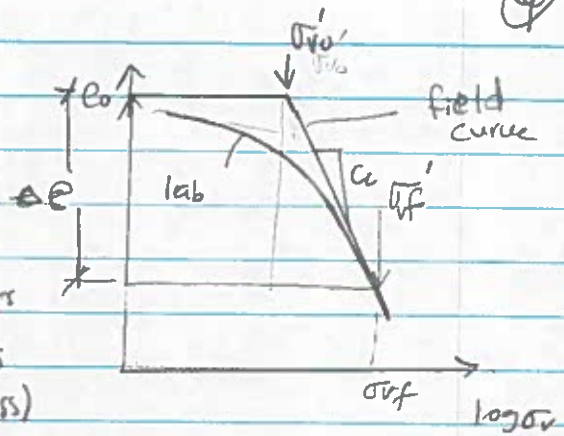 σ'vo
e₀
field
curve
Δe
lab
Cc
σ'vf
ss)
σvf
log σv